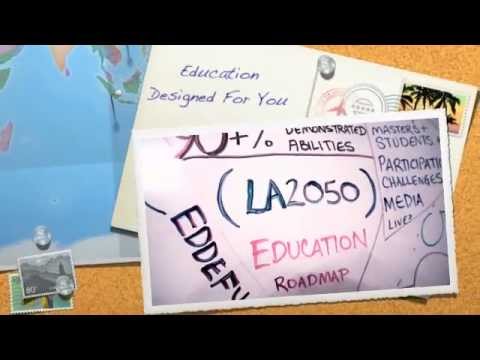 Education
Designed For You
90+% DEMONSTRATED
ABILITIES
MASTERS +
STUDENTS
PARTICIPATI
CHALLENGES
MEDIA
LIVE?
(LA2050)
EDDEFY
EDUCATION
ROADMAP
80